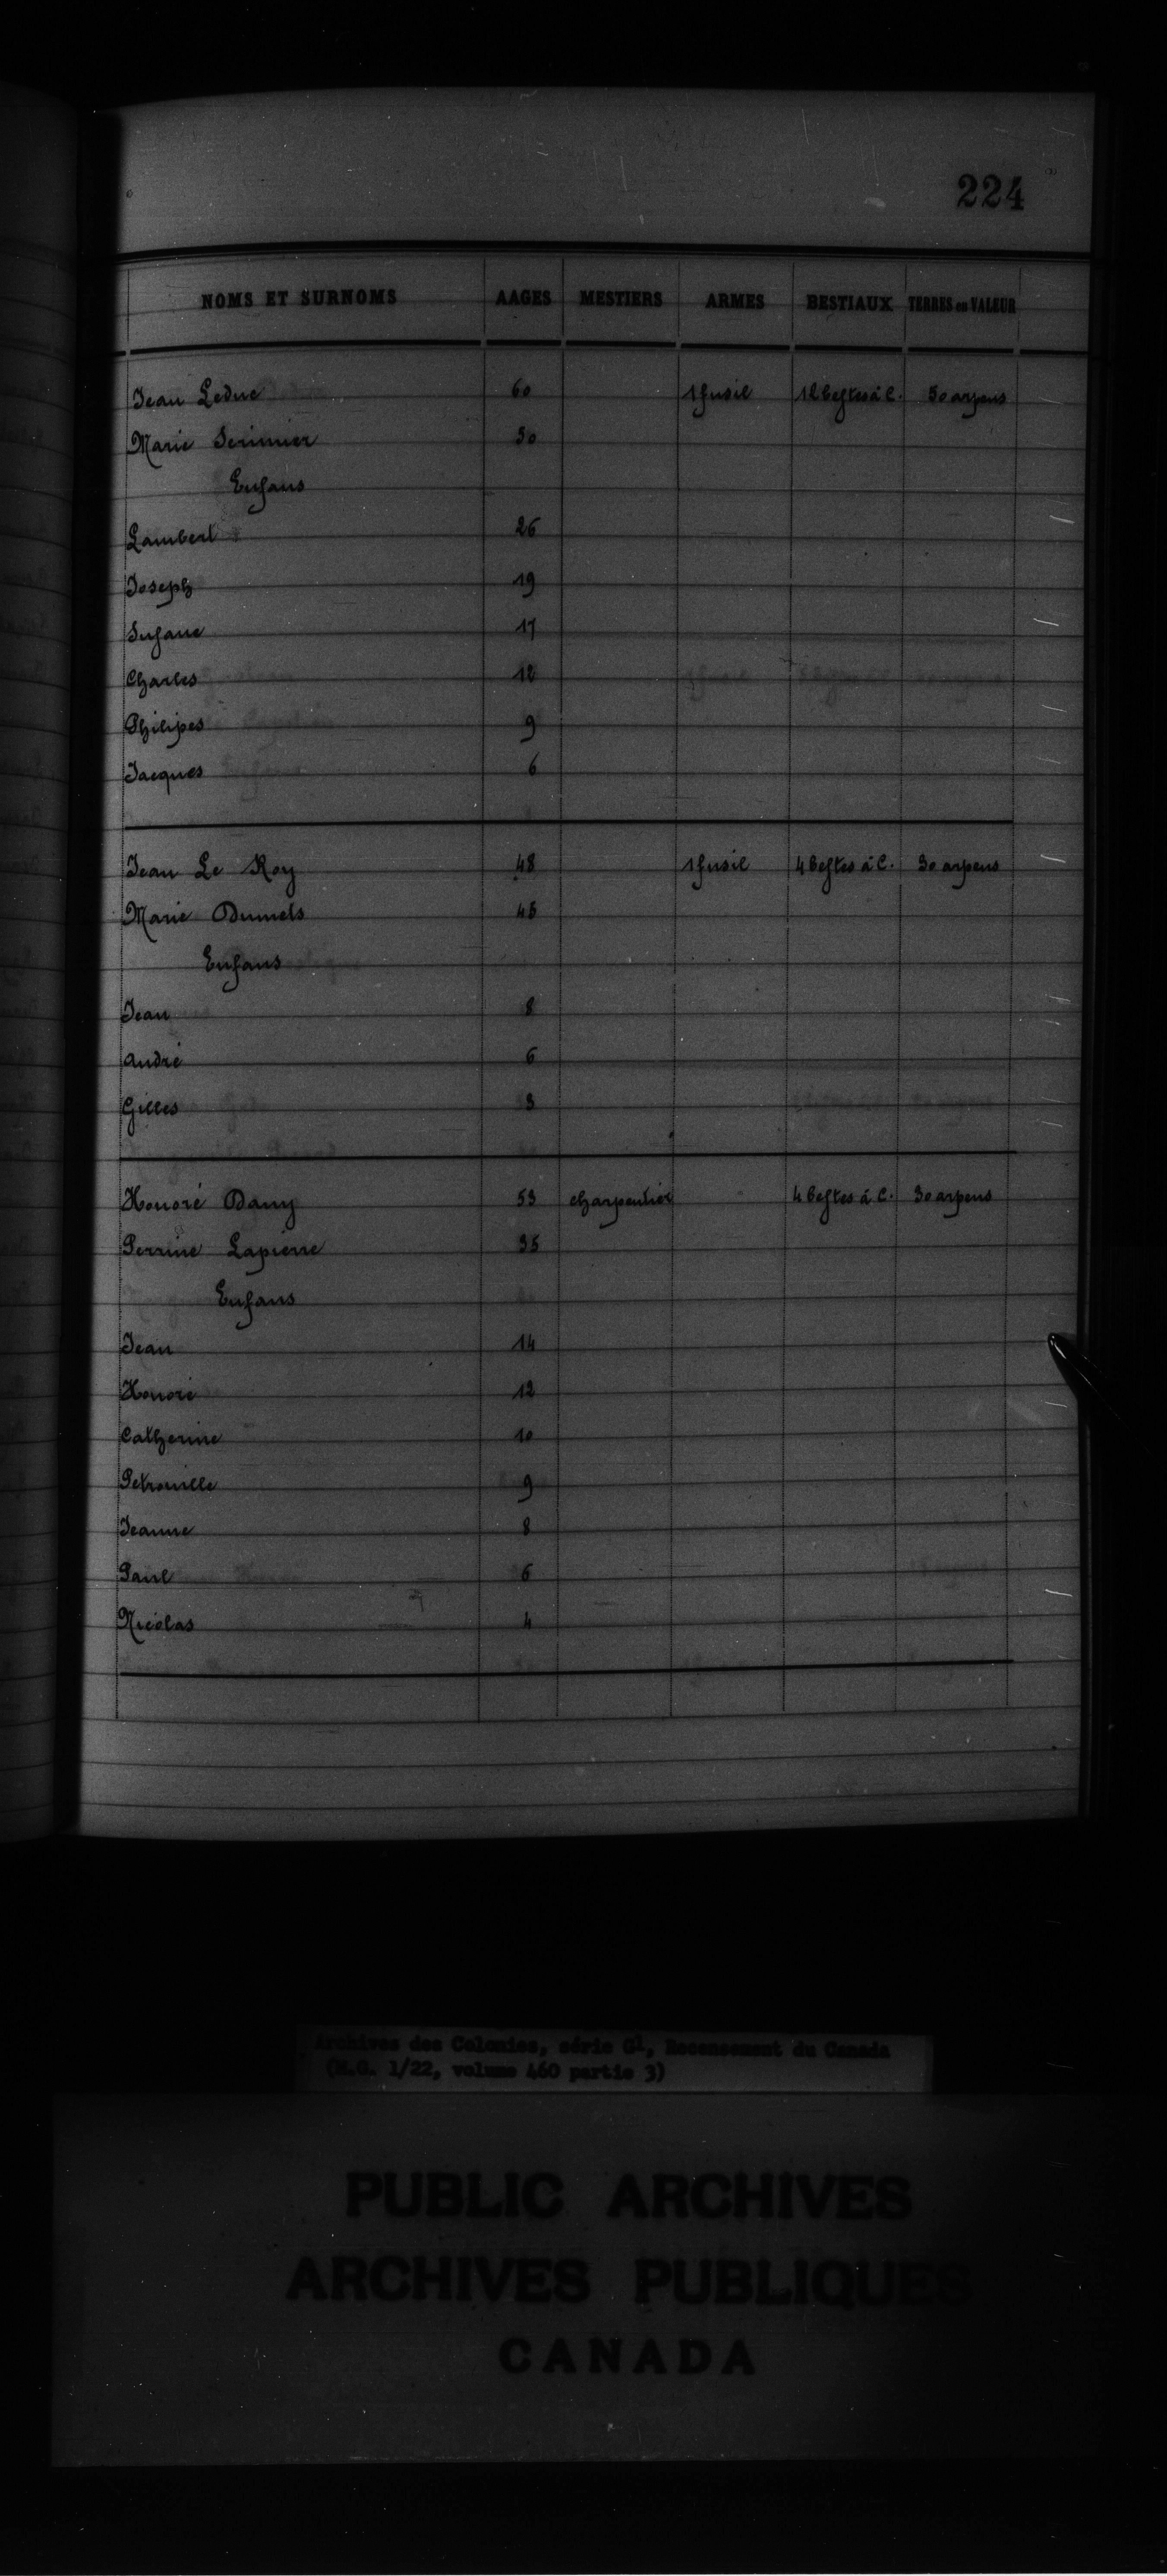 224
NOMS ET SURNOMS AAGES MESTIERS ARMES BESTIAUX TERRES en VALEUR
Jean Leduc 60 1 fusil 12 bestes à C. 50 arpens
Marie Serimier 50
Enfans
Lambert 26
Joseph 19
Susane 17
Charles 12
Philipes 9
Jacques 6
Jean Le Roy 48 1 fusil 4 bestes à C. 30 arpens
Marie Dumets 45
Enfans
Jean 8
André 6
Gilles 3
Honoré Dany 53 charpentier 4 bestes à C. 30 arpens
Perrine Lapierre 35
Enfans
Jean 14
Honoré 12
Catherine 10
Petronille 9
Jeanne 8
Paul 6
Nicolas 4
Archives des Colonies, série G1, Recensement du Canada
(M.G. 1/22, volume 460 partie 3)
PUBLIC ARCHIVES
ARCHIVES PUBLIQUES
CANADA